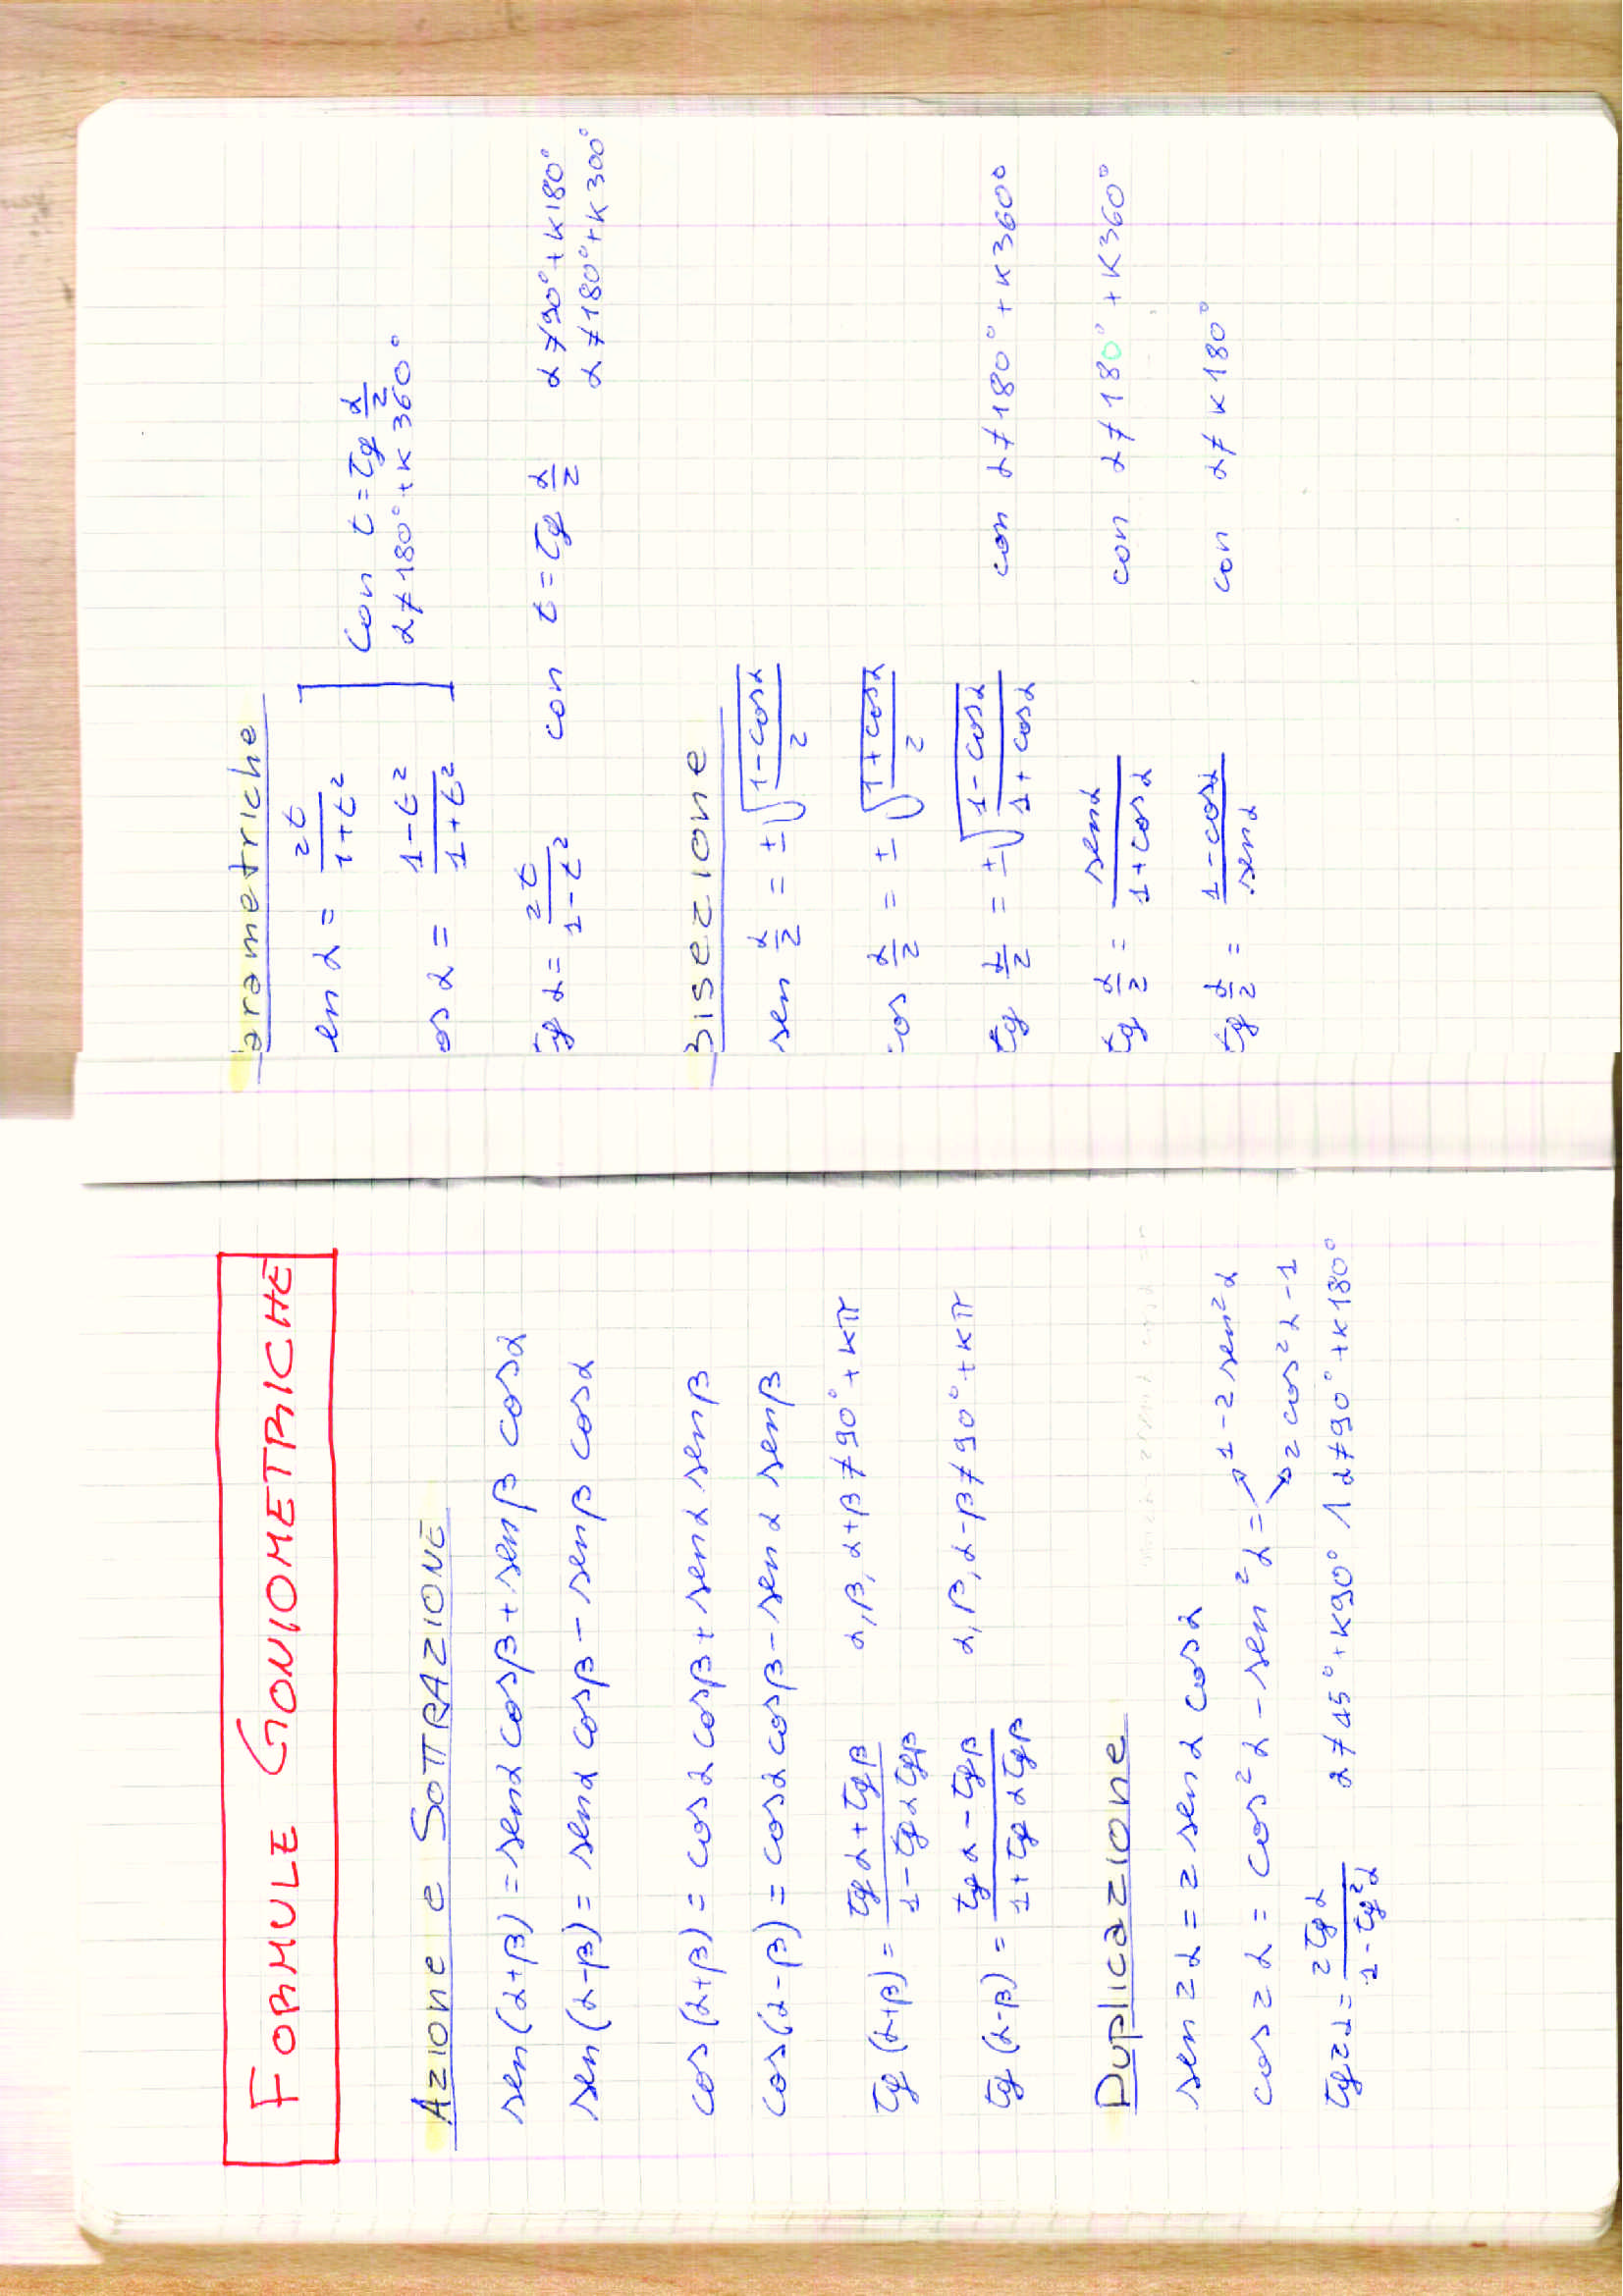 FORMULE GONIOMETRICHE
AZIONE e SOTTRAZIONE
sen(α+β) = senα cosβ + senβ cosα
sen(α-β) = senα cosβ - senβ cosα
cos(α+β) = cosα cosβ + senα senβ
cos(α-β) = cosα cosβ - senα senβ
tg(α+β) = (tgα + tgβ)/(1 - tgα tgβ) α, β, α+β ≠ 90° + kπ
tg(α-β) = (tgα - tgβ)/(1 + tgα tgβ) α, β, α-β ≠ 90° + kπ
Duplicazione
sen 2α = 2 senα cosα
cos 2α = cos²α - sen²α = ↗ 1 - 2 sen²α
↘ 2 cos²α - 1
tg 2α = 2 tgα/(1 - tg²α) α ≠ 45° + k90° ∧ α ≠ 90° + k180°
arametriche
en α = 2t/(1+t²)
os α = (1-t²)/(1+t²)
Con t = tg α/2
α ≠ 180° + k 360°
tg α = 2t/(1-t²) con t = tg α/2 α ≠ 90° + k180°
α ≠ 180° + k 300°
Bisezione
sen α/2 = ±√((1-cosα)/2)
cos α/2 = ±√((1+cosα)/2)
tg α/2 = ±√((1-cosα)/(1+cosα)) con α ≠ 180° + k 360°
tg α/2 = senα/(1+cosα) con α ≠ 180° + k360°
tg α/2 = (1-cosα)/senα con α ≠ k180°